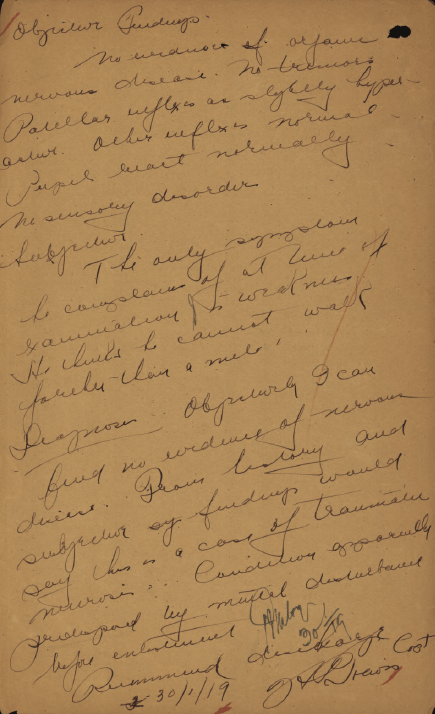 Objective Findings.
No evidence of organic
nervous disease. No tremors
Patellar reflexes are slightly hyper-
active. Other reflexes normal
Pupil react normally
No sensory disorder
Subjective.
The only symptom
he complains of at time of
examination is weakness
He thinks he cannot walk
further than a mile.
Diagnosis. Objectively I can
find no evidence of nervous
disease. From history and
subjective sy findings would
say this is a case of traumatic
neurosis. Condition apparently
predisposed by mental disturbance
before enlistment
Recommend discharge
30/1/19 Capt